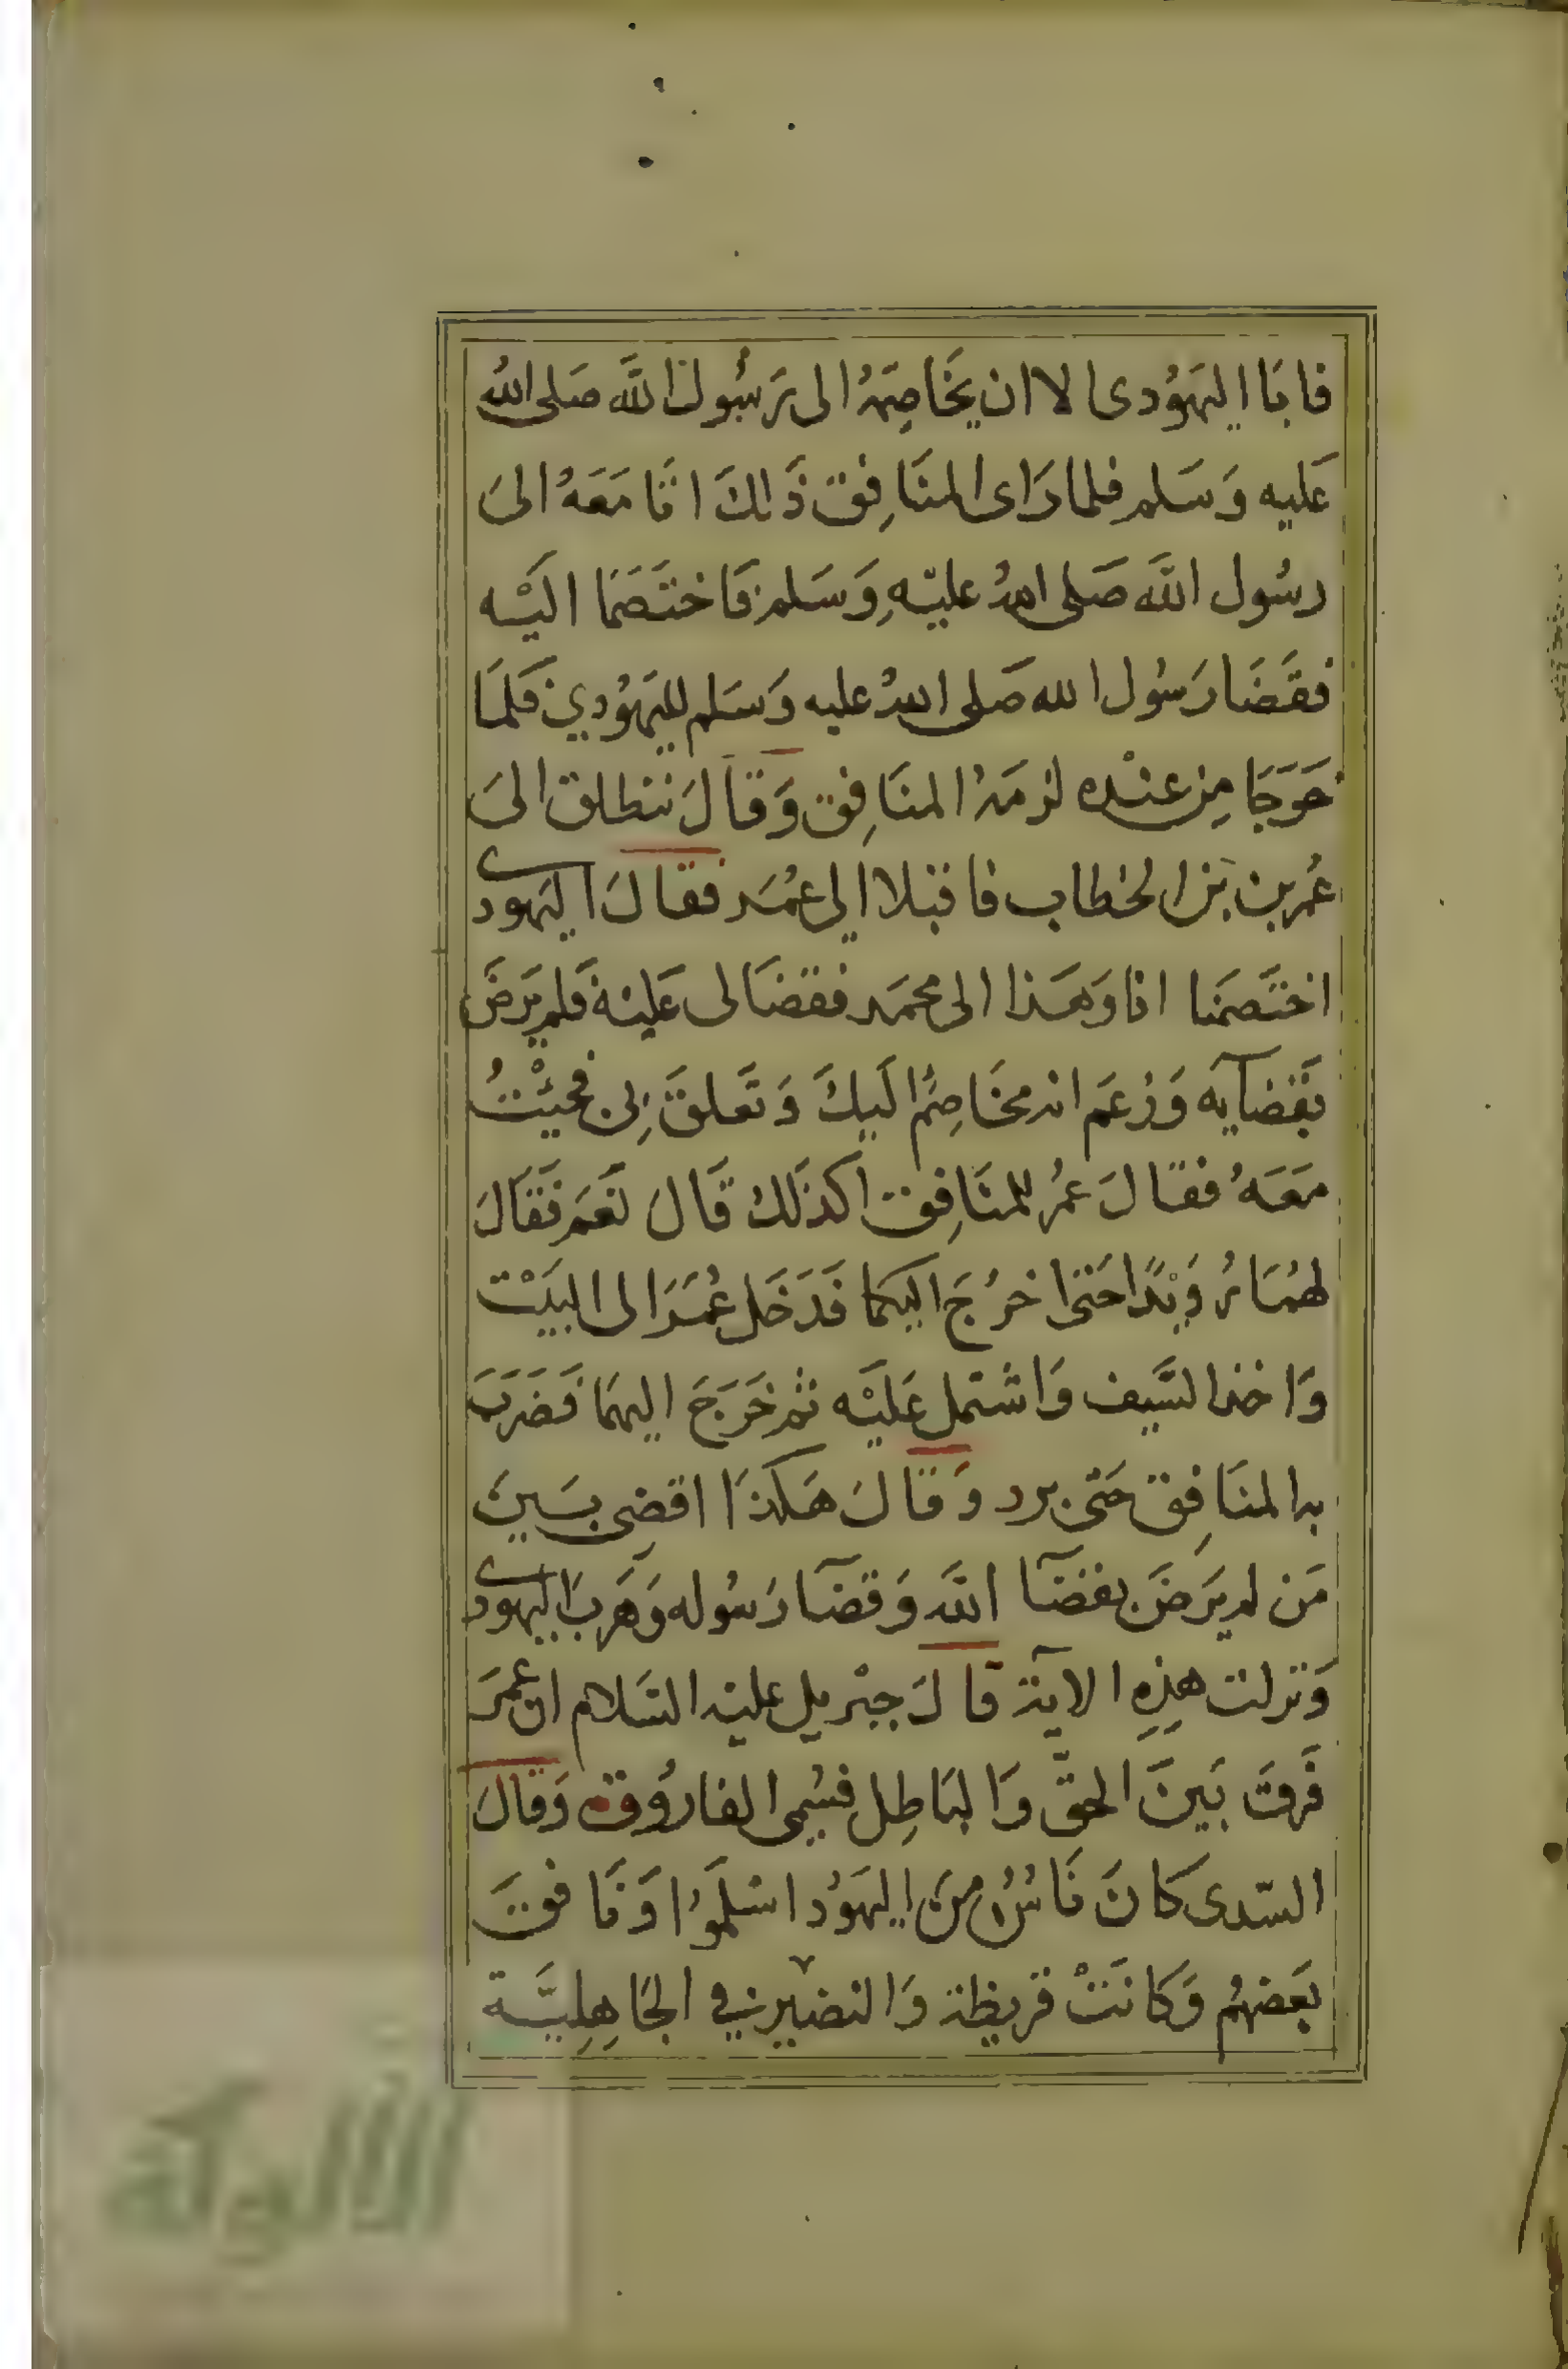 فابَا اليهَوُدى الا ان يخَاصِمَهُ الى رَسُول اللَّه صَلى اللهُ
عَليه وَسَلم فلما رَاى المنَافِق ذَلكَ اتَا مَعَهُ الىَ
رسُول اللَّه صَلى اللهُ عليْهِ وَسَلم فَاختَصَمَا اليَْه
فقَضَا رَسُول الله صَلى اللهُ عليه وَسَلم لليَهوُدي فَلمَا
خَرَجَا مِن عنْده لزمَهُ المنَافِق وَقالَ ننطلق الىَ
عُمر بن بن الخطاب فاقبَلا الى عُمَر فقالَ اليَهودى
اختَصَمَنا انا وَهَذا الى محمَد فقضَا لى عَليْه فَلم يَرضَ
بقَضَايه وَزعَم انه مخَاصِمُ اليكَ وَتعَلقَ بى فجيْئتُ
معَهُ فقالَ عمُر للمنَافِق اكذَلك قَال نعَم فَقَالَ
لهُمَا رُوَيْدًا حَتى اخرُجَ اليكما فَدَخَل عُمَرَ الى البَيْت
وَاخذ السَّيف وَاشتمل عَليَْه ثم خَرَجَ اليهمَا فَضَرَبَ
به المنَافِق حَتى برد وَقالَ هَكذَا اقضِى بَينَ
مَن لم يَرضَ بقضَآ اللَّه وَقضَآ رَسُوله وَهَربَ اليَهودى
وَنزلت هذِهِ الايَة قالَ جبْريل عليْه السَلام ان عمَر
فَرقَ بَينَ الحقّ وَالبَاطِل فسُمى الفارُوق وَقالَ
السّدى كانَ نَاسُ مِنَ اليهَوُد اسْلمَوُا وَنَافقَ
بَعضهُم وَكانَتْ قريظة وَالنضير في الجَاهِليَّة
الألوكة